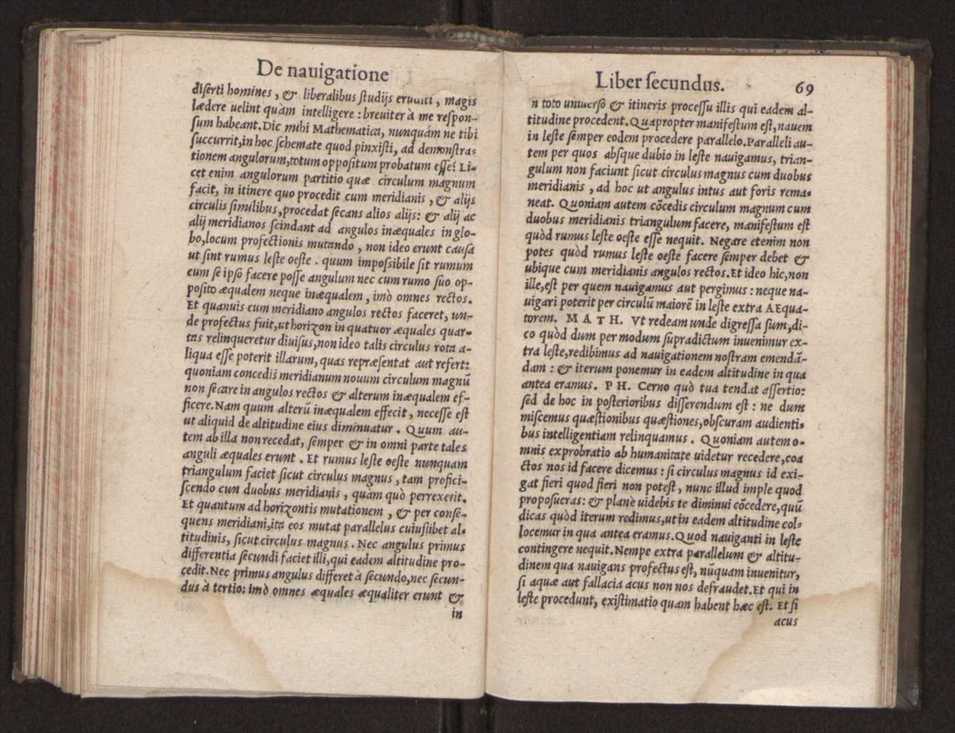 De nauigatione
diſerti homines, & liberalibus ſtudijs eruditi, magis
lædere uelint quàm intelligere: breuiter à me reſpon-
ſum habeant. Dic mihi Mathematica, nunquàm ne tibi
ſuccurrit, in hoc ſchemate quod pinxiſti, ad demonſtra-
tionem angulorum, totum oppoſitum probatum eſſe? Li-
cet enim angulorum partitio quæ circulum magnum
facit, in itinere quo procedit cum meridianis, & alijs
circulis ſimilibus, procedat ſecans alios alijs: & alij ac
alij meridianos ſcindant ad angulos inæquales in glo-
bo, locum profectionis mutando, non ideo erunt cauſa
ut ſint rumus leſte oeſte. quum impoſsibile ſit rumum
cum ſe ipſo facere poſſe angulum nec cum rumo ſuo op-
poſito æqualem neque inæqualem, imò omnes rectos.
Et quanuis cum meridiano angulos rectos faceret, un-
de profectus fuit, ut horizon in quatuor æquales quar-
tas relinqueretur diuiſus, non ideo talis circulus rota a-
liqua eſſe poterit illarum, quas repræſentat aut refert:
quoniam concedis meridianum nouum circulum magnū
non ſecare in angulos rectos & alterum inæqualem ef-
ficere. Nam quum alterū inæqualem effecit, neceſſe eſt
ut aliquid de altitudine eius diminuatur. Quum au-
tem ab illa non recedat, ſemper & in omni parte tales
anguli æquales erunt. Et rumus leſte oeſte nunquam
triangulum faciet ſicut circulus magnus, tam profici-
ſcendo cum duobus meridianis, quàm quò perrexerit.
Et quantum ad horizontis mutationem, & per conſe-
quens meridiani, ita eos mutat parallelus cuiuſlibet al-
titudinis, ſicut circulus magnus. Nec angulus primus
differentia ſecundi faciet illi, qui eadem altitudine pro-
cedit. Nec primus angulus differet à ſecundo, nec ſecun-
dus à tertio: imò omnes æquales æqualiter erunt &
in
Liber ſecundus. 69
n toto uniuerſo & itineris proceſſu illis qui eadem al-
titudine procedent. Quapropter manifeſtum eſt, nauem
in leſte ſemper eodem procedere parallelo. Paralleli au-
tem per quos abſque dubio in leſte nauigamus, trian-
gulum non faciunt ſicut circulus magnus cum duobus
meridianis, ad hoc ut angulus intus aut foris rema-
neat. Quoniam autem cōcedis circulum magnum cum
duobus meridianis triangulum facere, manifeſtum eſt
quòd rumus leſte oeſte eſſe nequit. Negare etenim non
potes quòd rumus leſte oeſte facere ſemper debet &
ubique cum meridianis angulos rectos. Et ideo hic, non
ille, eſt per quem nauigamus aut pergimus: neque na-
uigari poterit per circulū maiorē in leſte extra AEqua-
torem. MATH. Vt redeam unde digreſſa ſum, di-
co quòd dum per modum ſupradictum inuenimur ex-
tra leſte, redibimus ad nauigationem noſtram emendā-
dam: & iterum ponemur in eadem altitudine in qua
antea eramus. PH. Cerno quò tua tendat aſſertio:
ſed de hoc in poſterioribus diſſerendum eſt: ne dum
miſcemus quæſtionibus quæſtiones, obſcuram audienti-
bus intelligentiam relinquamus. Quoniam autem o-
mnis exprobratio ab humanitate uidetur recedere, coa
ctos nos id facere dicemus: ſi circulus magnus id exi-
gat fieri quod fieri non poteſt, nunc illud imple quod
propoſueras: & planè uidebis te diminui cōcedere, quū
dicas quòd iterum redimus, ut in eadem altitudine col-
locemur in qua antea eramus. Quod nauiganti in leſte
contingere nequit. Nempe extra parallelum & altitu-
dinem qua nauigans profectus eſt, nūquam inuenitur,
ſi aquæ aut fallacia acus non nos defraudet. Et qui in
leſte procedunt, exiſtimatio quam habent hæc eſt. Et ſi
acus